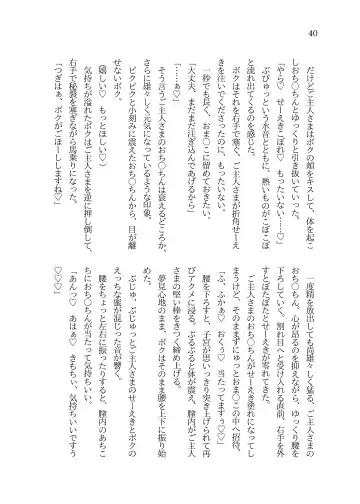 40
だけどご主人さまはボクの額をキスして、体を起こ
しおち〇ちんとゆっくりと引き抜いていった。
「やら♡　せーえきこぼれ♡　もったいない…♡」
ぷぴゅっという水音とともに、熱いものがこぽこぽ
と流れ出てくるのを感じた。
ボクはそれを右手で塞ぐ、ご主人さまが折角せーえ
きを注いでくださったのに、もったいない。
一秒でも長く、おま〇こに留めておきたい。
「大丈夫、まだまだ注ぎ込んであげるから」
「……ぁ♡」
そう言うご主人さまのおち〇ちんは衰えるどころか、
さらに雄々しく元気になっているような印象。
ビクビクと小刻みに震えたおち〇ちんから、目が離
せないボク。
（嬉しい♡　もっとほしい♡）
気持ちが溢れたボクはご主人さまを逆に押し倒して、
右手で秘裂を塞ぎながら馬乗りになった。
「つぎはぁ、ボクがごほーししますね♡」
一度精を放出しても尚雄々しく猛る、ご主人さまの
おち〇ちん。心が逸るのを抑えながら、ゆっくり腰を
下ろしていく。割れ目へと受け入れる直前、右手を外
すとぼたぼたとせーえきが零れてきた。
ご主人さまのおち〇ちんがせーえき塗れになってし
まうけど、そのまますにゅっとおま〇この中へ招待。
「ふ、ふかぁ♡　おくぅ♡　当たってますぅ♡♡」
腰を下ろすと、子宮が思いっきり突き上げられて再
びアクメに浸る。ぶるぶると体が震え、膣内がご主人
さまの堅い棒をきつく締め上げる。
夢見心地のまま、ボクはそのまま腰を上下に振り始
めた。
ぷじゅ、ぷじゅっとご主人さまのせーえきとボクの
えっちな蜜が混じった音が響く。
腰をちょっと左右に振ったりすると、膣内のあちこ
ちにおち〇ちんが当たって気持ちいい。
「あんっ♡　あはぁ♡　きもちぃ、気持ちいいですう
♡♡♡」